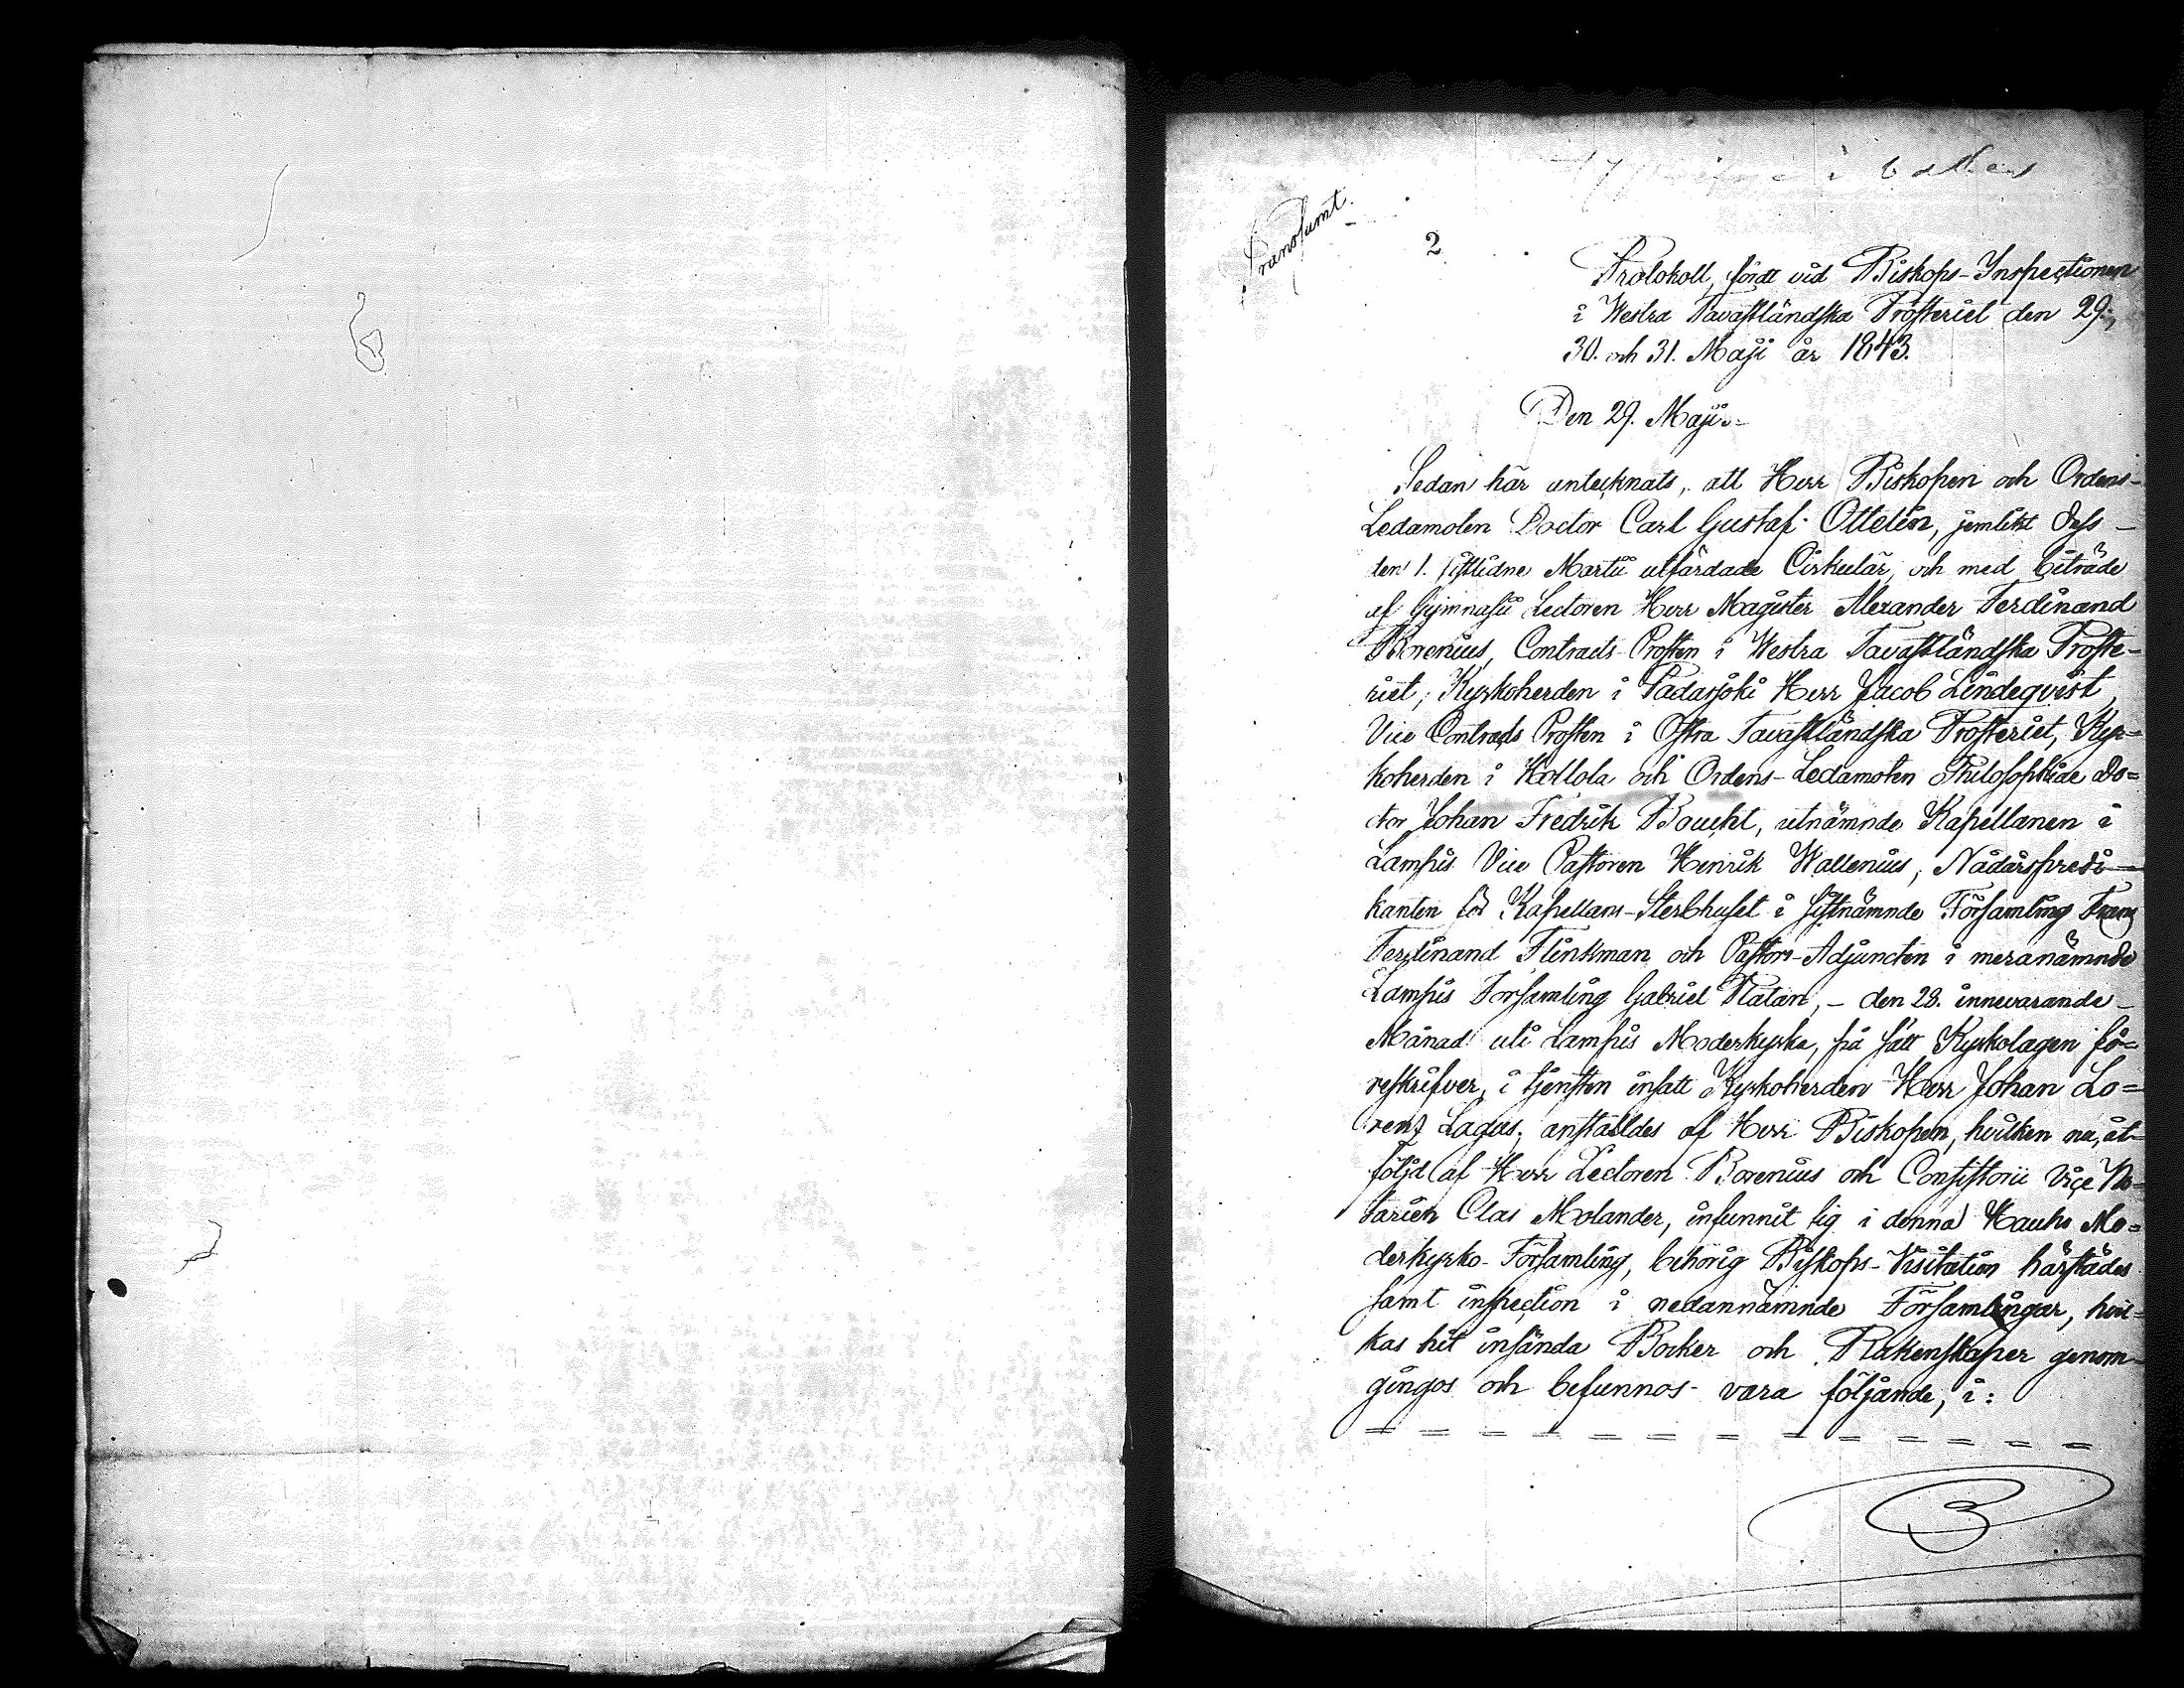 Transsumt.
2
Protokoll, fördt vid Biskops-Inspectionen
i Westra Tavastländska Prosteriet den 29.,
30. och 31. Maji år 1843.
Den 29. Maji.
Sedan här antecknats, att Herr Biskopen och Ordens-
Ledamoten Doctor Carl Gustaf Ottelin, jemlikt dess
den 1. sistlidne Martii utfärdade Cirkulär, och med biträde
af Gymnasii Lectoren Herr Magister Alexander Ferdinand
Borenius, Contracts Prosten i Westra Tavastländska Proste-
riet, Kyrkoherden i Padasjoki Herr Jacob Lindeqvist,
Vice Contracts Prosten i Östra Tavastländska Prosteriet, Kyr=
koherden i Hollola och Ordens-Ledamoten Philosophiæ Do=
ctor Johan Fredrik Boucht, utnämnde Kapellanen i
Lampis Vice Pastoren Henrik Wallenius, Nådårspredi-
kanten för Kapellans-Sterbhuset i sistnämnde Församling Frans
Ferdinand Flinkman och Pastors-Adjuncten i meranämnde
Lampis Församling Gabriel Platan, - den 28. innevarande
Månad uti Lampis Moderkyrka, på sätt Kyrkolagen fö=
reskrifver, i tjensten insatt Kyrkoherden Herr Johan Lo=
renz Lagus; anställdes af Herr Biskopen, hvilken nu, åt-
följd af Herr Lectoren Borenius och Consistorii Vice No-
tarien Clas Molander, infunnit sig i denna Hauho Mo=
derkyrko-Församling, behörig Biskops-Visitation härstädes
samt inspection i nedannämnde Församlingar, hvil-
kas hit insända Böcker och Räkenskaper genom-
gingos och befunnos vara följande, i: